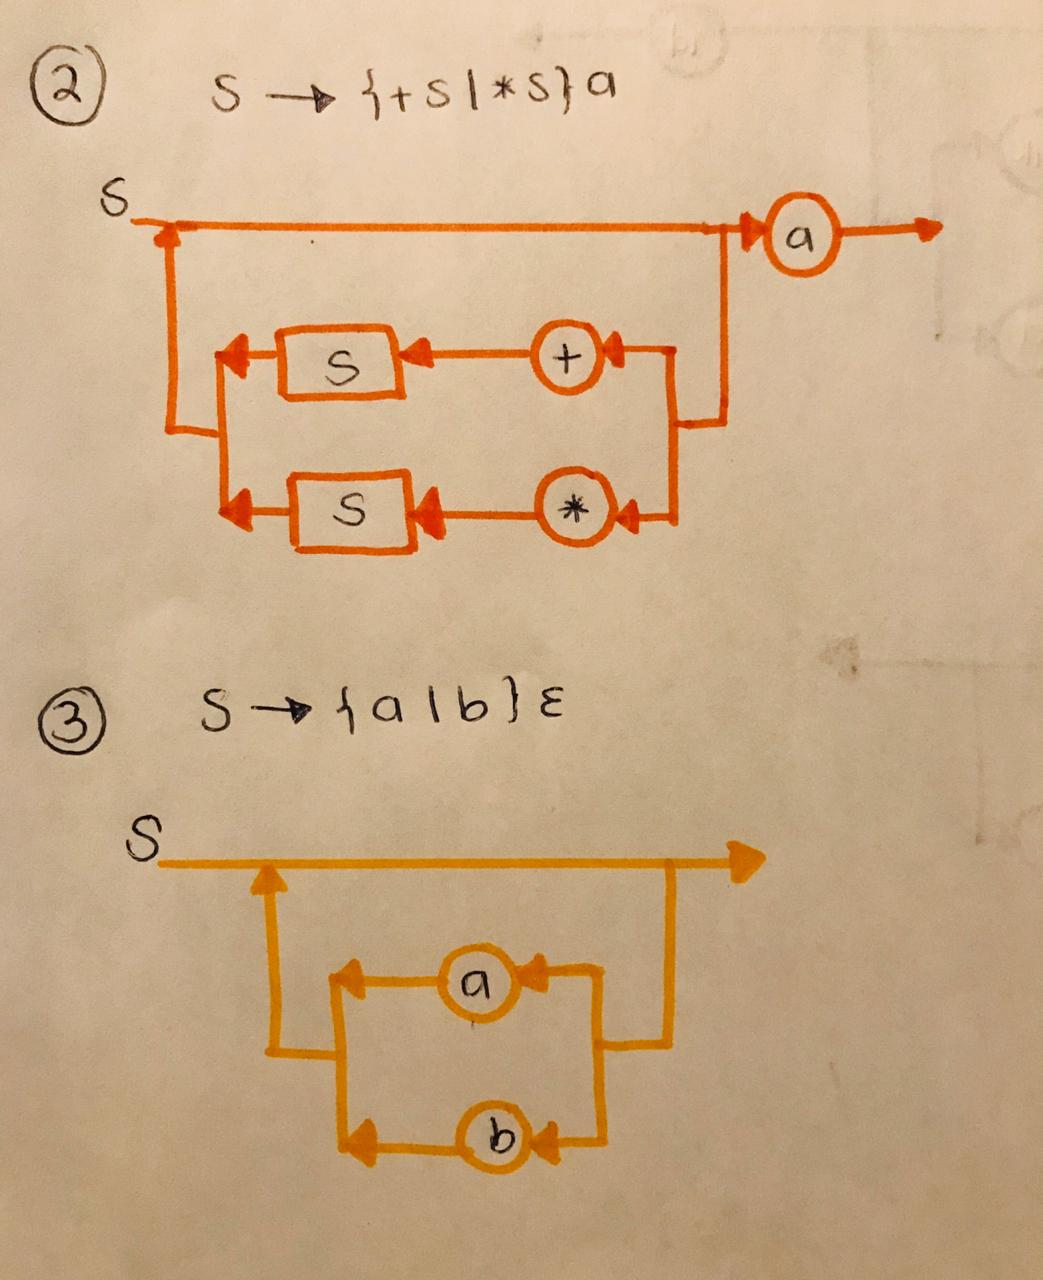 ② S → {+S|*S}a
S
a
S +
S *
③ S → {a|b}ε
S
a
b